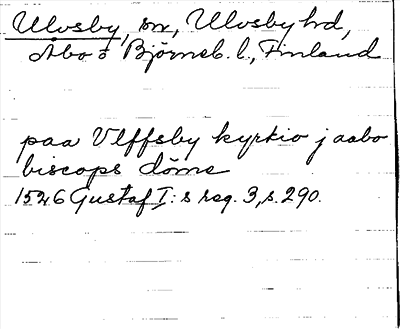 Ulvsby, sn, Ulvsby hd,
Åbo o Björneb. l., Finland
paa Vlffsby kyrkio j aabo
biscops döme
1526 Gustaf I:s reg. 3, s. 290.